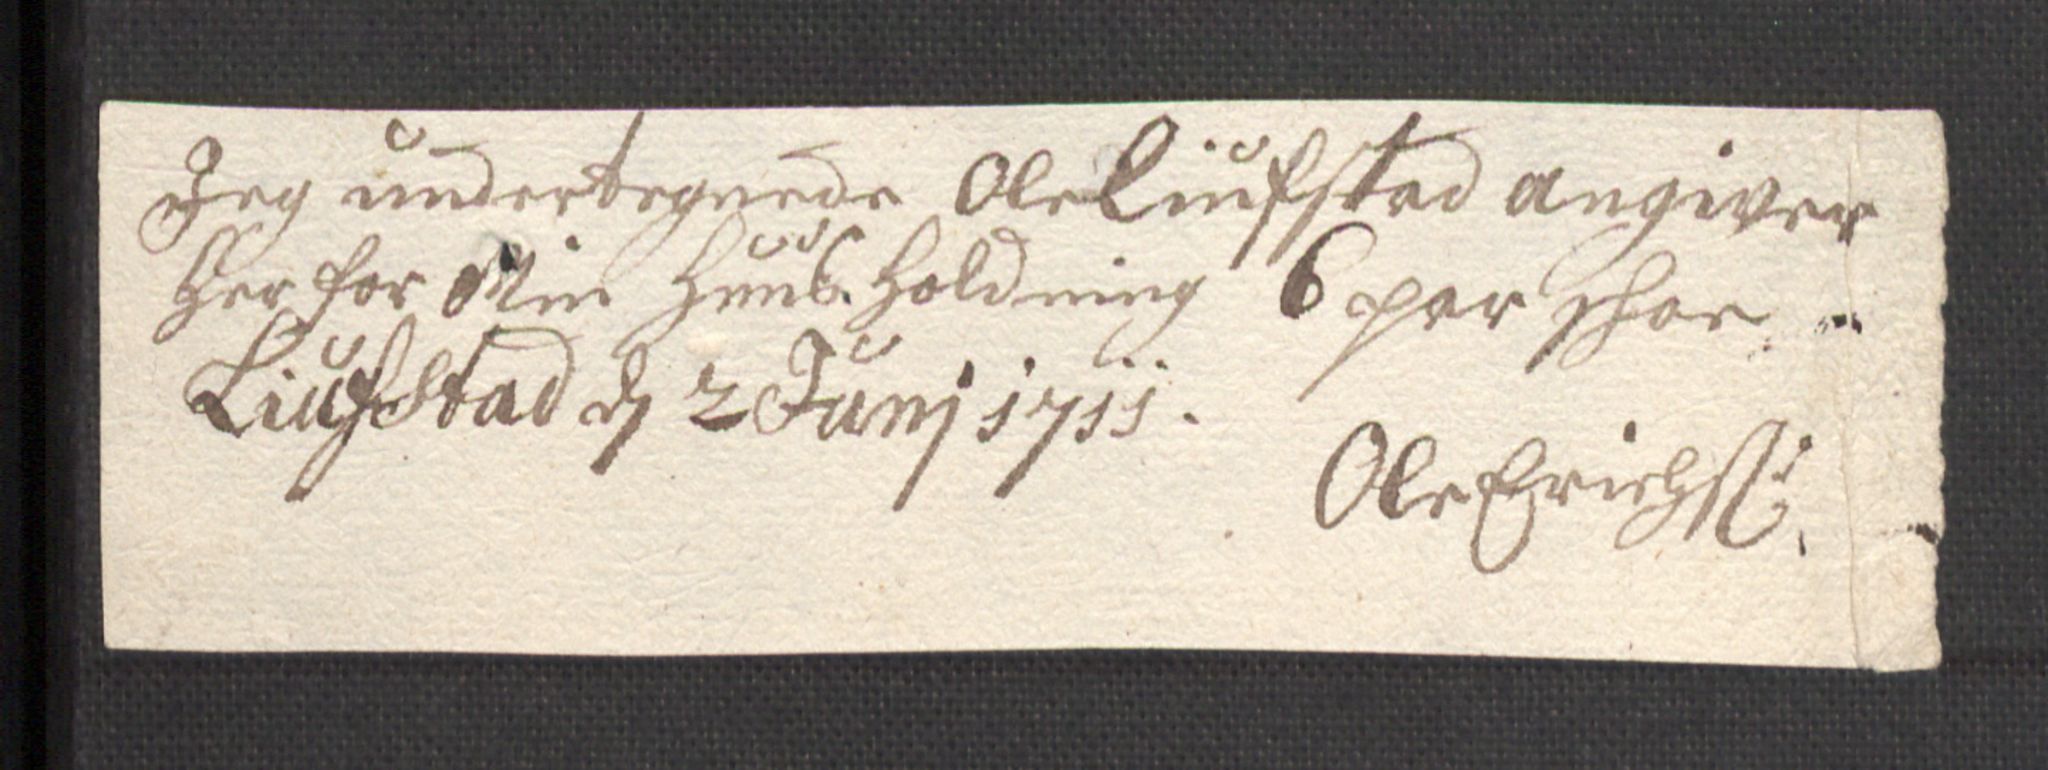 Jeg undertegnede Ole Liufstad angiver
Her for Min Huus Holdning 6 par Schoe
Liufstad d 2 Junj 1711.
Ole Erichss